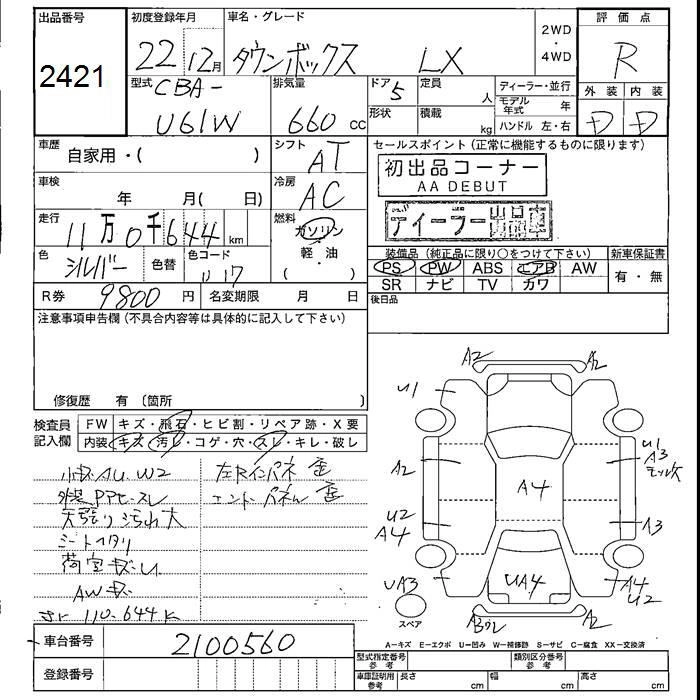 出品番号
2421
初度登録年月
22 12月
車名・グレード
タウンボックス LX
2WD
・
4WD
評価点
R
型式
CBA-
U61W
排気量
660 cc
ドア 5
定員
人
形状
積載
kg
ディーラー・並行
モデル年式 年
ハンドル 左・右
外装
内装
D D
車歴
自家用・( )
シフト
AT
セールスポイント(正常に機能するものに限ります)
初出品コーナー
AA DEBUT
ディーラー出品車
車検
年 月( 日)
冷房
AC
走行
11万0千644 km
燃料
ガソリン
軽・油
( )
色
シルバー
色替
色コード
U17
装備品(純正品に限り○をつけて下さい)
PS PW ABS エアB AW
SR ナビ TV カワ
新車保証書
有・無
R券 9800 円
名変期限 月 日
後日品
注意事項申告欄(不具合内容等は具体的に記入して下さい)
修復歴 有 〔箇所 〕
検査員
記入欄
FW キズ・飛石・ヒビ割・リペア跡・X要
内装 キズ・汚レ・コゲ・穴・スレ・キレ・破レ
小キズ AU W2
外装 PPセースレ
天張り汚れ大
シートヘタリ
荷室キズ・U
AWキズ
110.644K
左Rインパネ 歪
エンドーパネル 歪
A2
A2
U1
U1
A3
A2
A4
U2
A4
A3
UA3
UA4
A4
U2
スペア
A2
A-キズ E-エクボ U-凹み W-補修跡 S-サビ C-腐食 XX-交換済
車台番号
2100560
登録番号
型式指定番号
参考
類別区分番号
参考
車庫証明用
参考
長さ cm
幅 cm
高さ cm